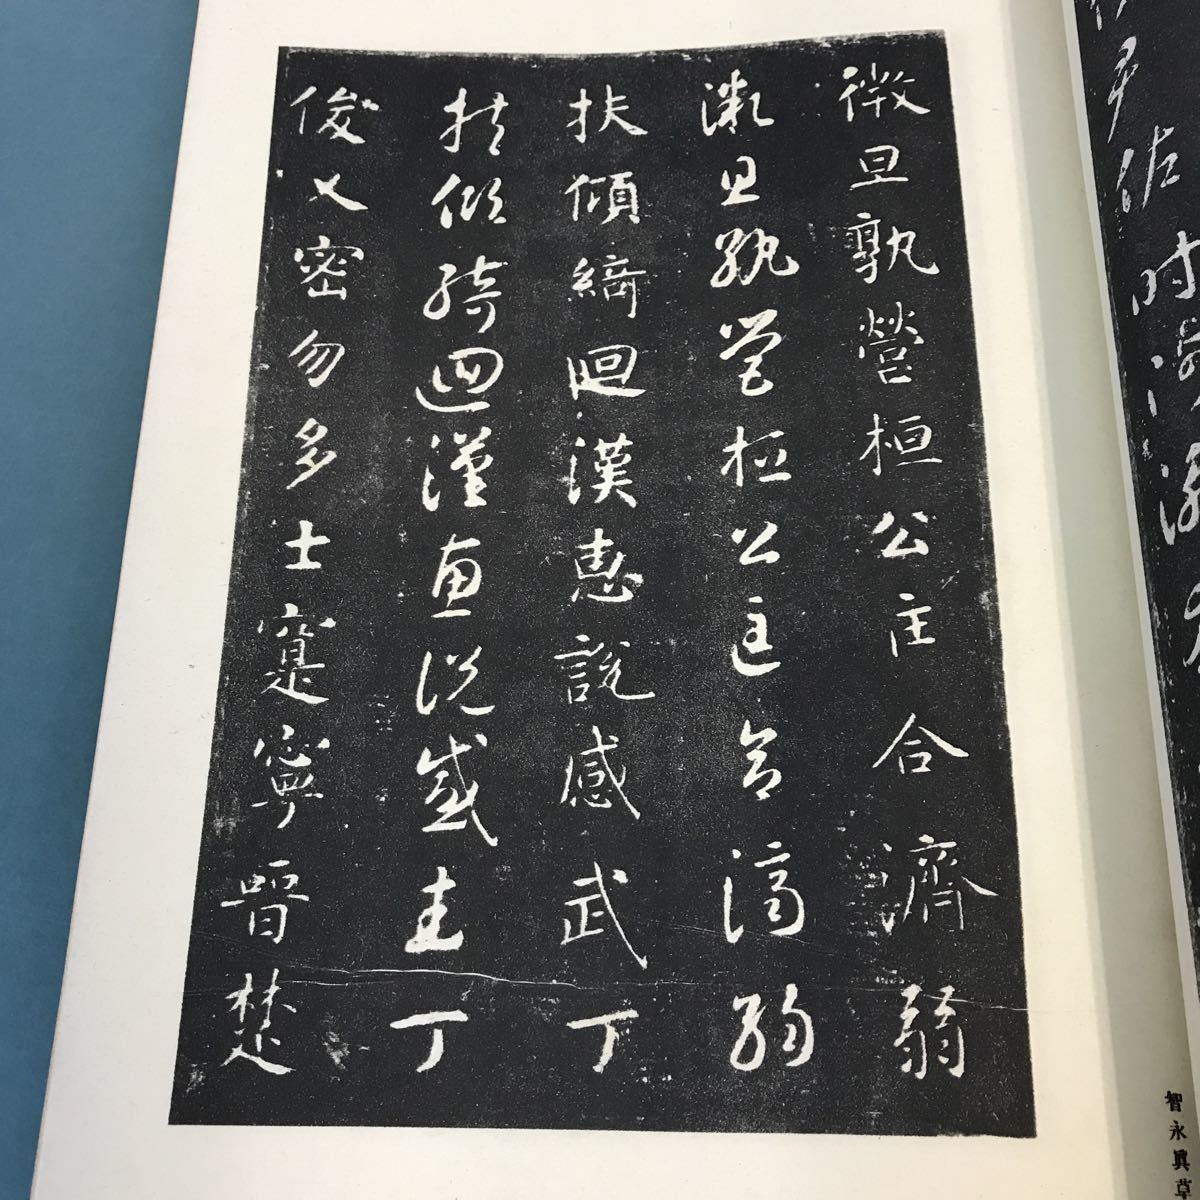 微旦孰營桓公匡合濟弱
微旦孰營桓公匡合濟弱
扶傾綺迴漢惠說感武丁
扶傾綺迴漢惠說感武丁
俊乂密勿多士寔寧晉楚
智永眞草